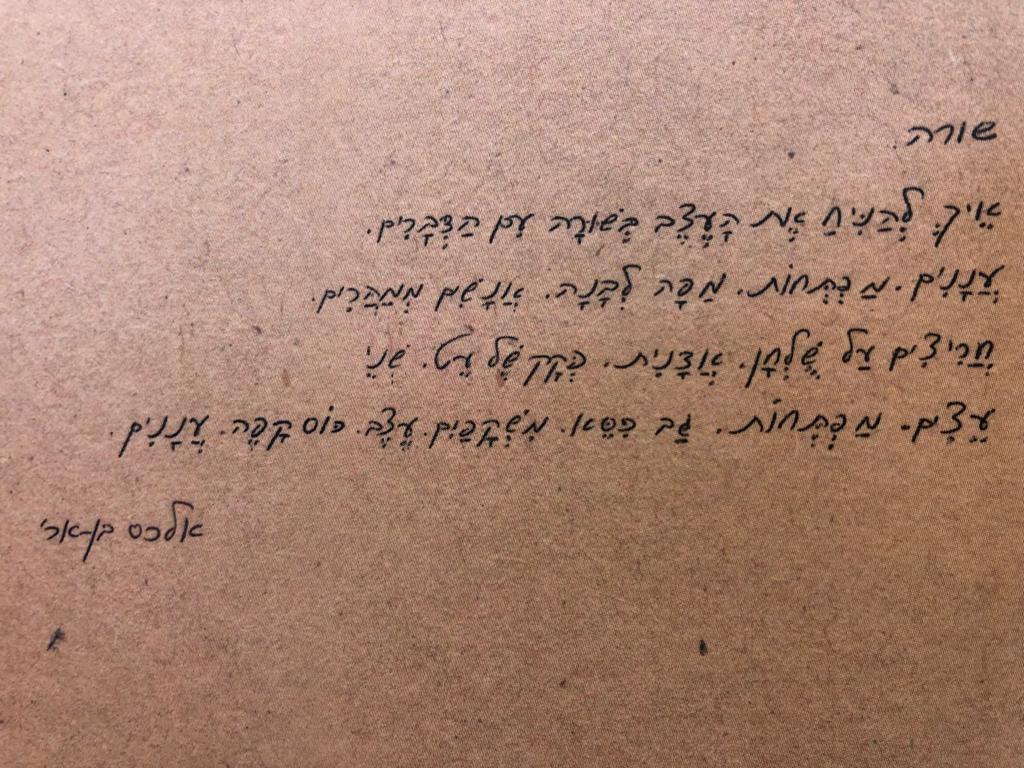 שורה
אֵיךְ לְהַנִּיחַ אֶת הָעֶצֶב בְּשׁוּרָה עִם הַדְּבָרִים.
עֲנָנִים. מַפְתְּחוֹת. מַפָּה לְבָנָה. אֲנָשִׁים מְמַהֲרִים.
חֲרִיצִים עַל שֻׁלְחָן. אֲדָנִית. פְּקָק שֶׁל עֵט. שְׁנֵי
עֵצִים. מַפְתְּחוֹת. גַּב כִּסֵּא. מִשְׁקָפַיִם. עֶצֶב. כּוֹס קָפֶה. עֲנָנִים.
אלכס בן-ארי